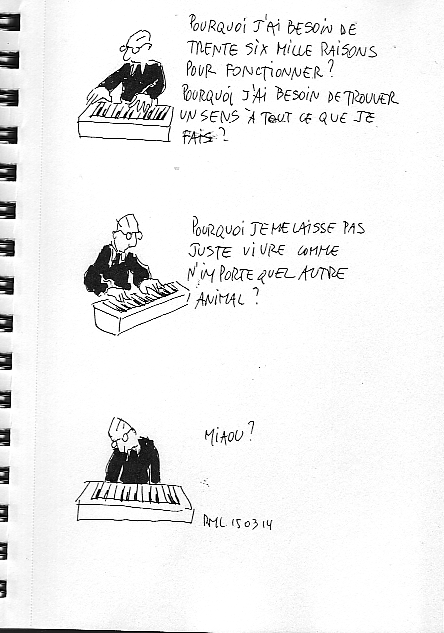 POURQUOI J'AI BESOIN DE
TRENTE SIX MILLE RAISONS
POUR FONCTIONNER?
POURQUOI J'AI BESOIN DE TROUVER
UN SENS À TOUT CE QUE JE
FAIS?
POURQUOI JE ME LAISSE PAS
JUSTE VIVRE COMME
N'IMPORTE QUEL AUTRE
ANIMAL?
MIAOU?
RML 150314